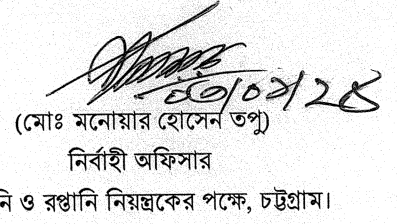 (মোঃ মনোয়ার হোসেন তপু)
নির্বাহী অফিসার
নি ও রপ্তানি নিয়ন্ত্রকের পক্ষে, চট্টগ্রাম।